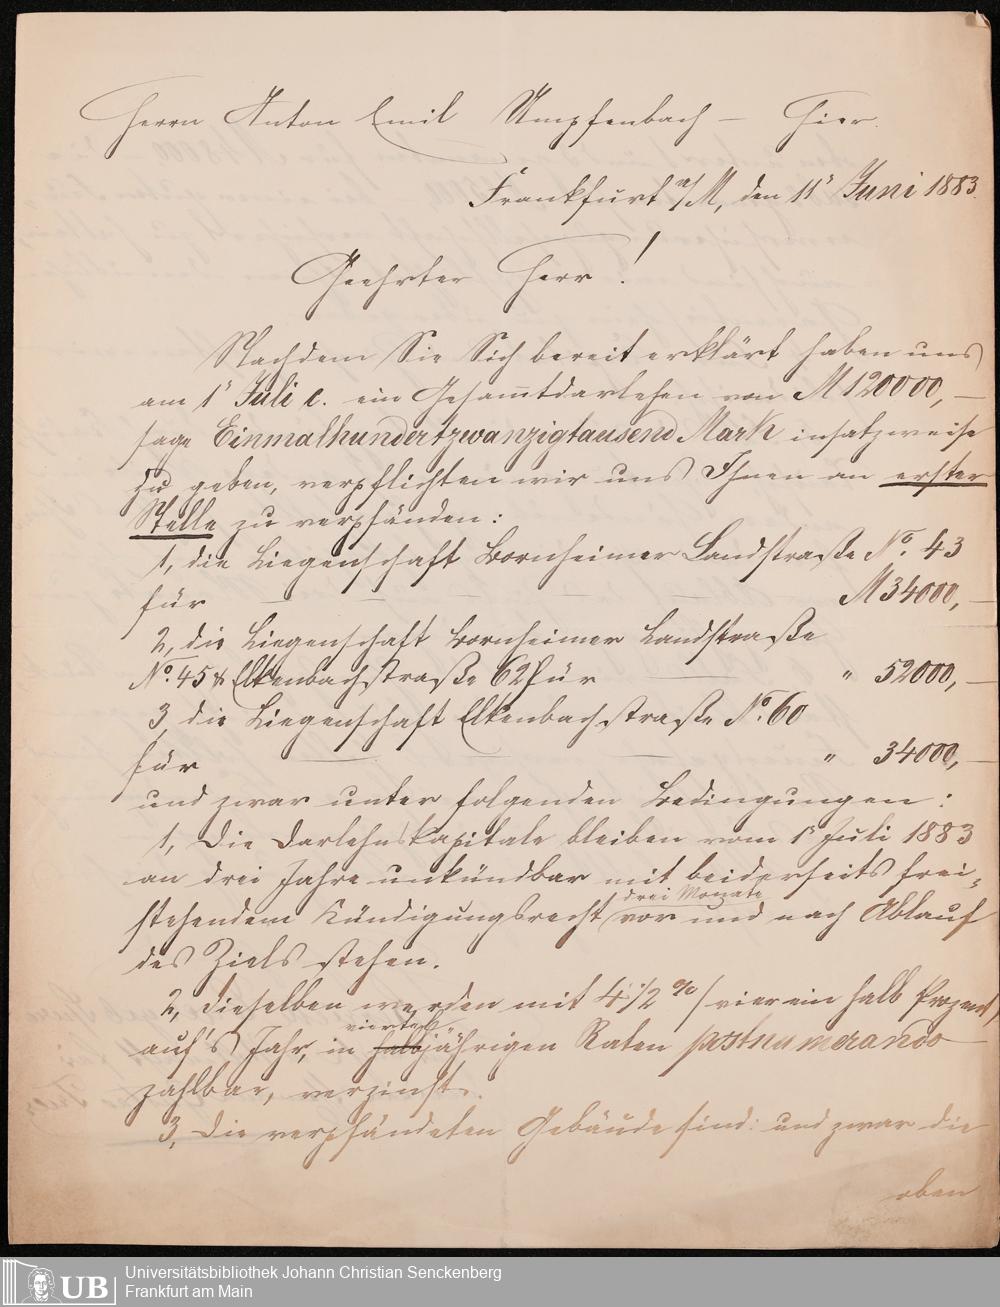 Herrn Anton Emil Umpfenbach – Hier.
Frankfurt a/M, den 11ᵗ Juni 1883.
Geehrter Herr!
Nachdem Sie Sich bereit erklärt haben uns
am 1ᵗ Juli c. ein Gesam̅tdarlehen von M 120000,–
sage Einmalhundertzwanzigtausend Mark insatzweise
zu geben, verpflichten wir uns Ihnen an erster
Stelle zu verpfänden:
1, die Liegenschaft Bornheimer Landstraße No. 43
für — — — M 34000,–
2, die Liegenschaft Bornheimer Landstraße
No. 45 & Elkenbachstraße 62 für — " 52000,–
3 die Liegenschaft Elkenbachstraße No. 60
für — — — " 34000,–
und zwar unter folgenden Bedingungen:
1, Die Darlehnskapitale bleiben vom 1ᵗ Juli 1883
an drei Jahre unkündbar mit beiderseits frei=
drei Monate
stehendem Kündigungsrecht vor und nach Ablauf
des Ziels stehen.
2, dieselben werden mit 4 1/2 % / vier ein halb Prozent,
viertel
auf's Jahr, in halbjährigen Raten postnumerando
zahlbar, verzinst.
3, Die verpfändeten Gebäude sind: und zwar die
oben
UB
Universitätsbibliothek Johann Christian Senckenberg
Frankfurt am Main